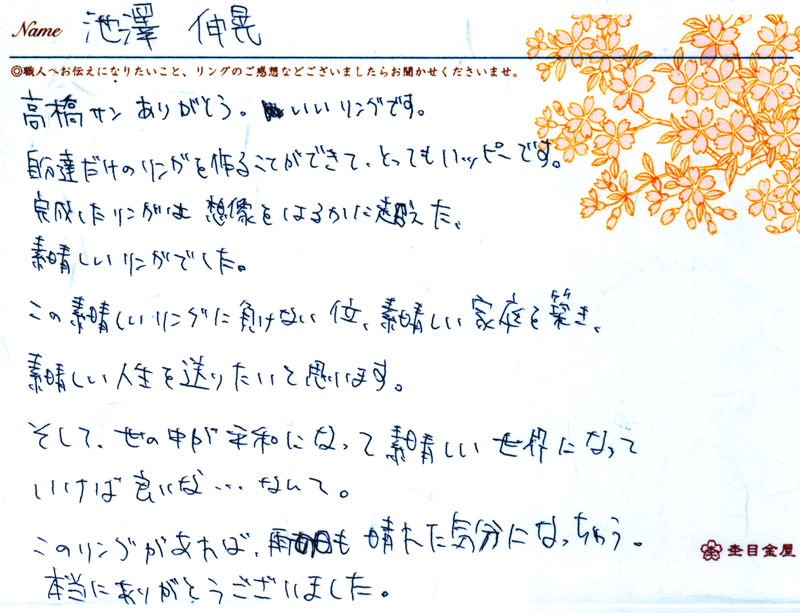 Name 池澤 伸晃
◎職人へお伝えになりたいこと、リングのご感想などございましたらお聞かせくださいませ。
高橋サン ありがとう。いいリングです。
自分達だけのリングを作ることができて、とってもハッピーです。
完成したリングは 想像をはるかに超えた、
素晴しいリングでした。
この素晴しいリングに負けない位、素晴しい家庭を築き、
素晴しい人生を送りたいと思います。
そして、世の中が平和になって素晴しい世界になって
いけば良いな…なんて。
このリングがあれば、雨の日も晴れた気分になっちゃう。
本当にありがとうございました。
杢目金屋